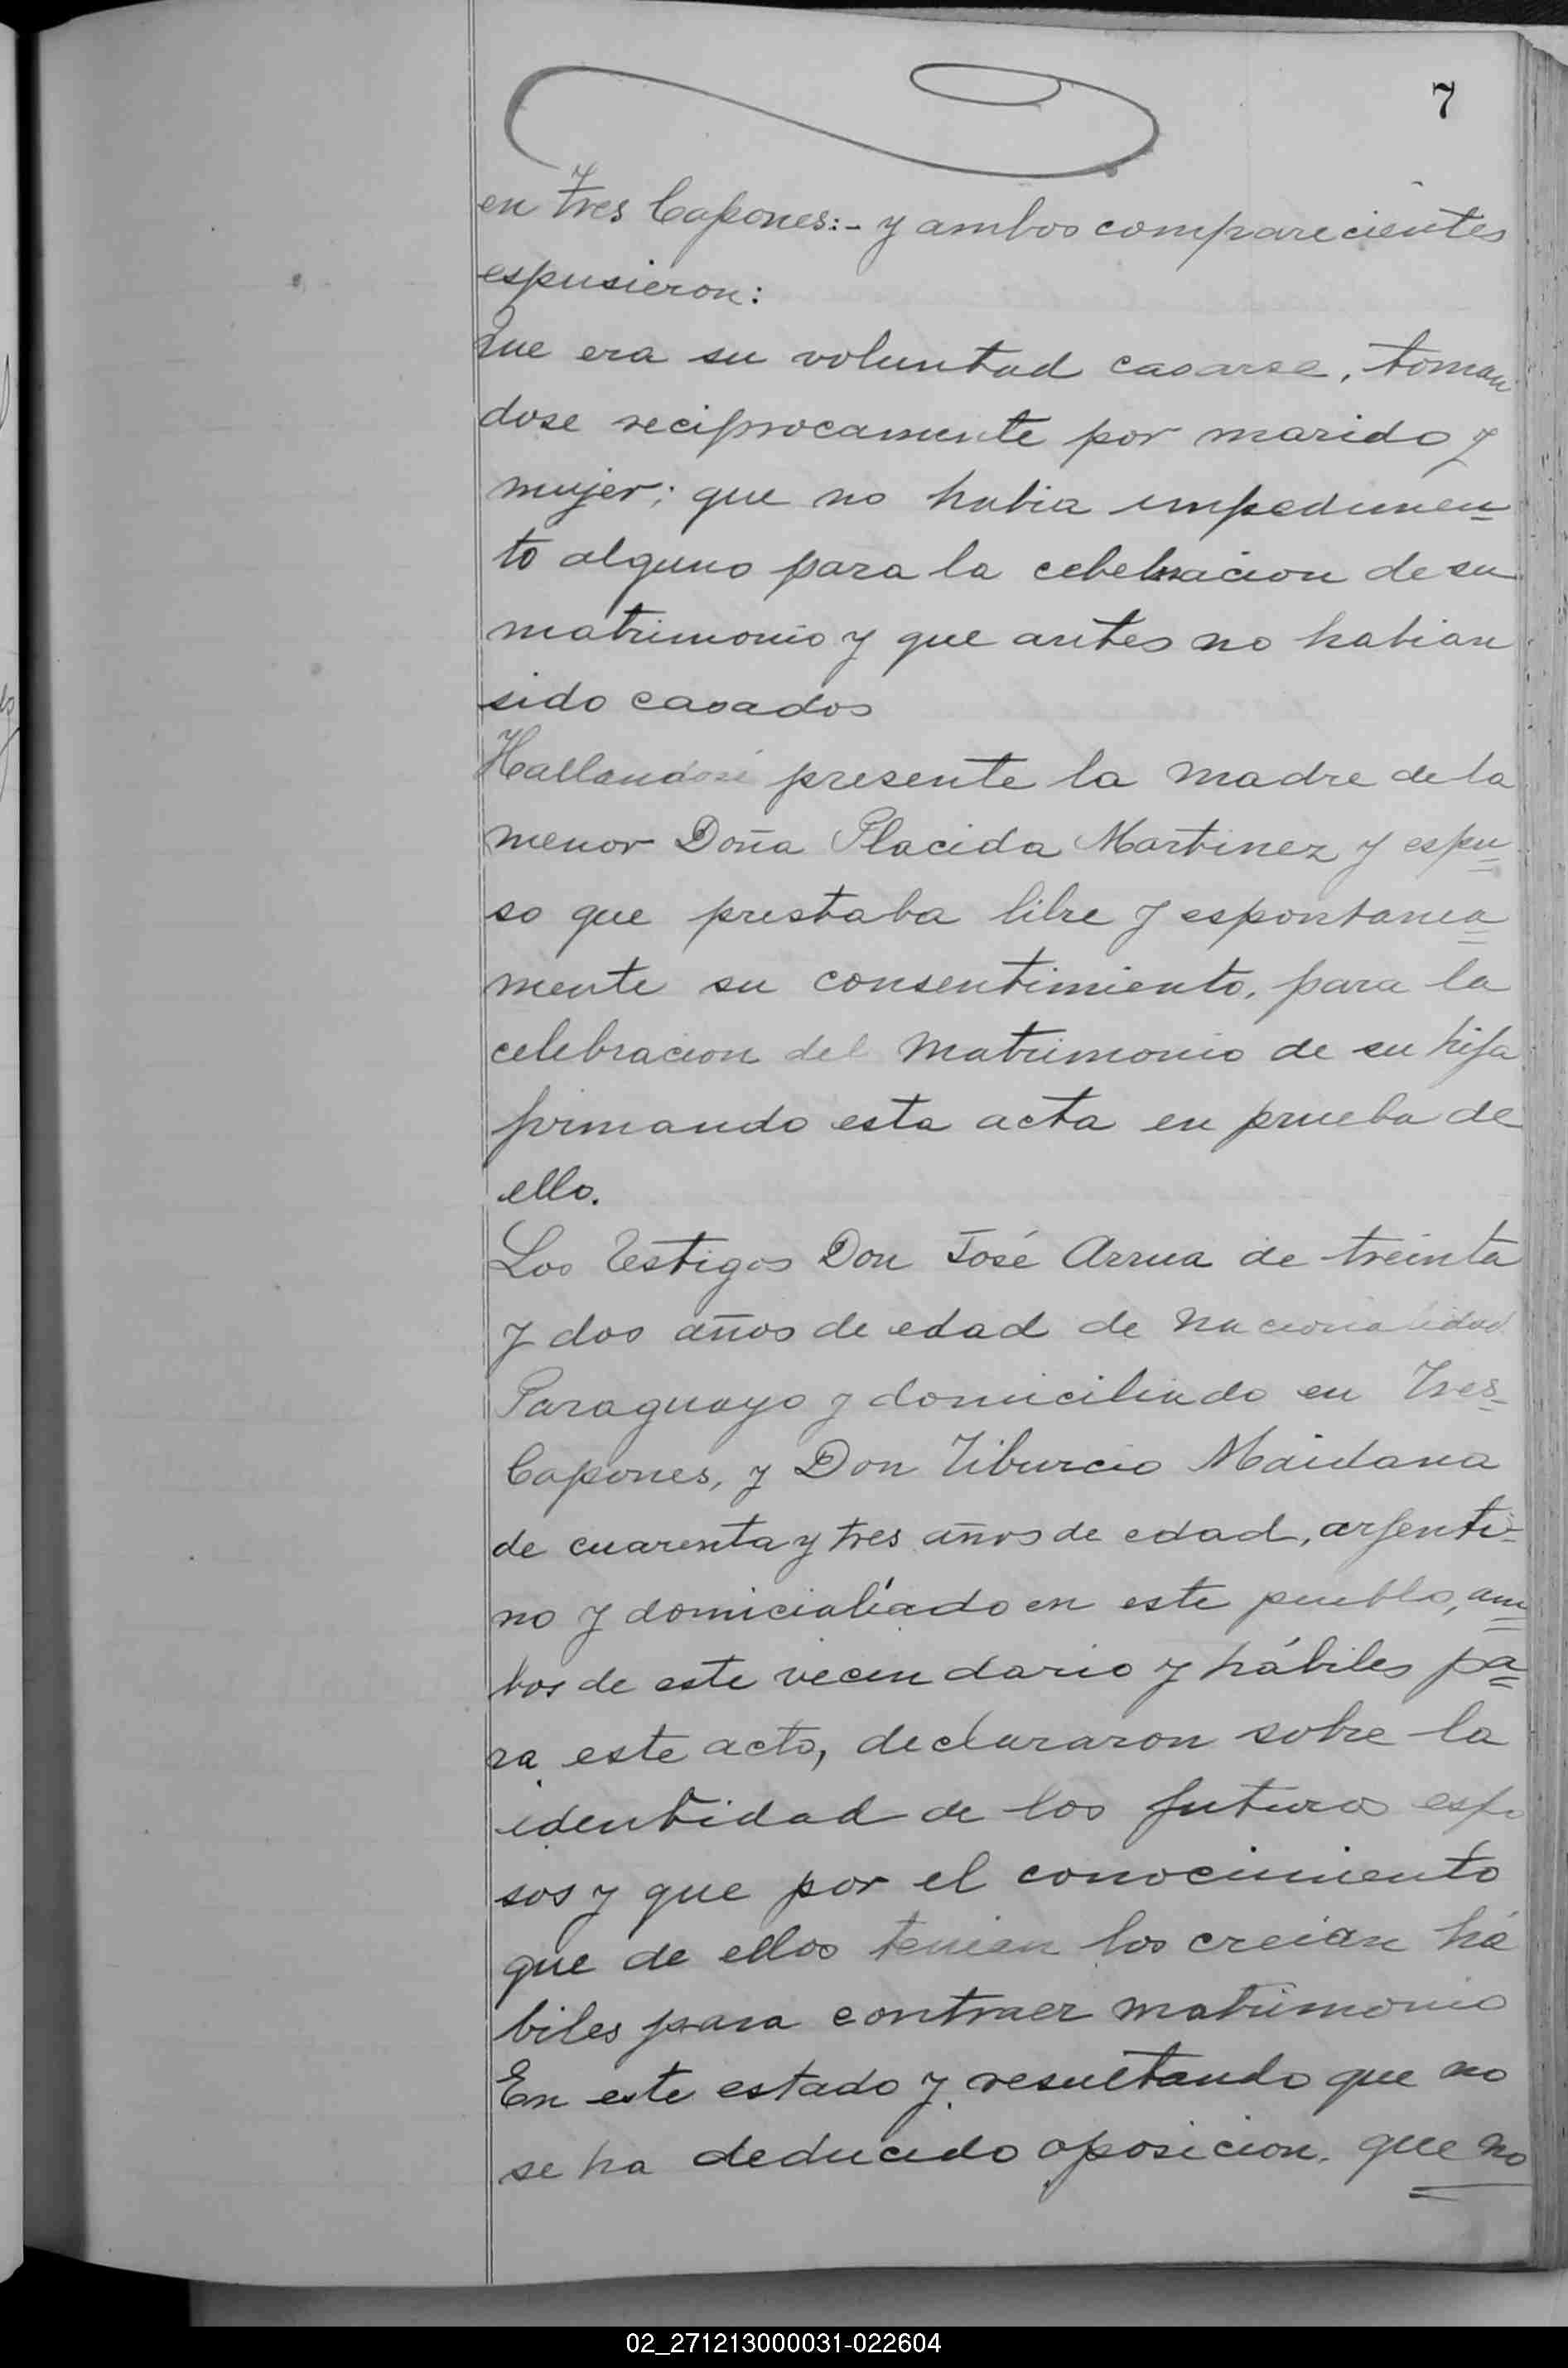 7
en Tres Capones:- y ambos comparecientes
espusieron:
Que era su voluntad casarse, toman
dose reciprocamente por marido y
mujer; que no habia impedimen=
to alguno para la celebracion de su
matrimonio y que antes no habian
sido casados
Hallandose presente la madre de la
menor Doña Placida Martinez y espu=
so que prestaba libre y espontanea=
mente su consentimiento, para la
celebracion del matrimonio de su hija
firmando esta acta en prueba de
ello.
Los Testigos Don José Arrua de treinta
y dos años de edad de nacionalidad
Paraguayo y domiciliado en Tres=
Capones, y Don Tiburcio Maidana
de cuarenta y tres años de edad, argenti=
no y domicialiado en este pueblo, am=
bos de este vecindario y hábiles pa=
ra este acto, declararon sobre la
identidad de los futuros espo
sos y que por el conocimiento
que de ellos tenian los creian há
biles para contraer matrimonio
En este estado y resultando que no
se ha deducido oposicion, que no
02_271213000031-022604